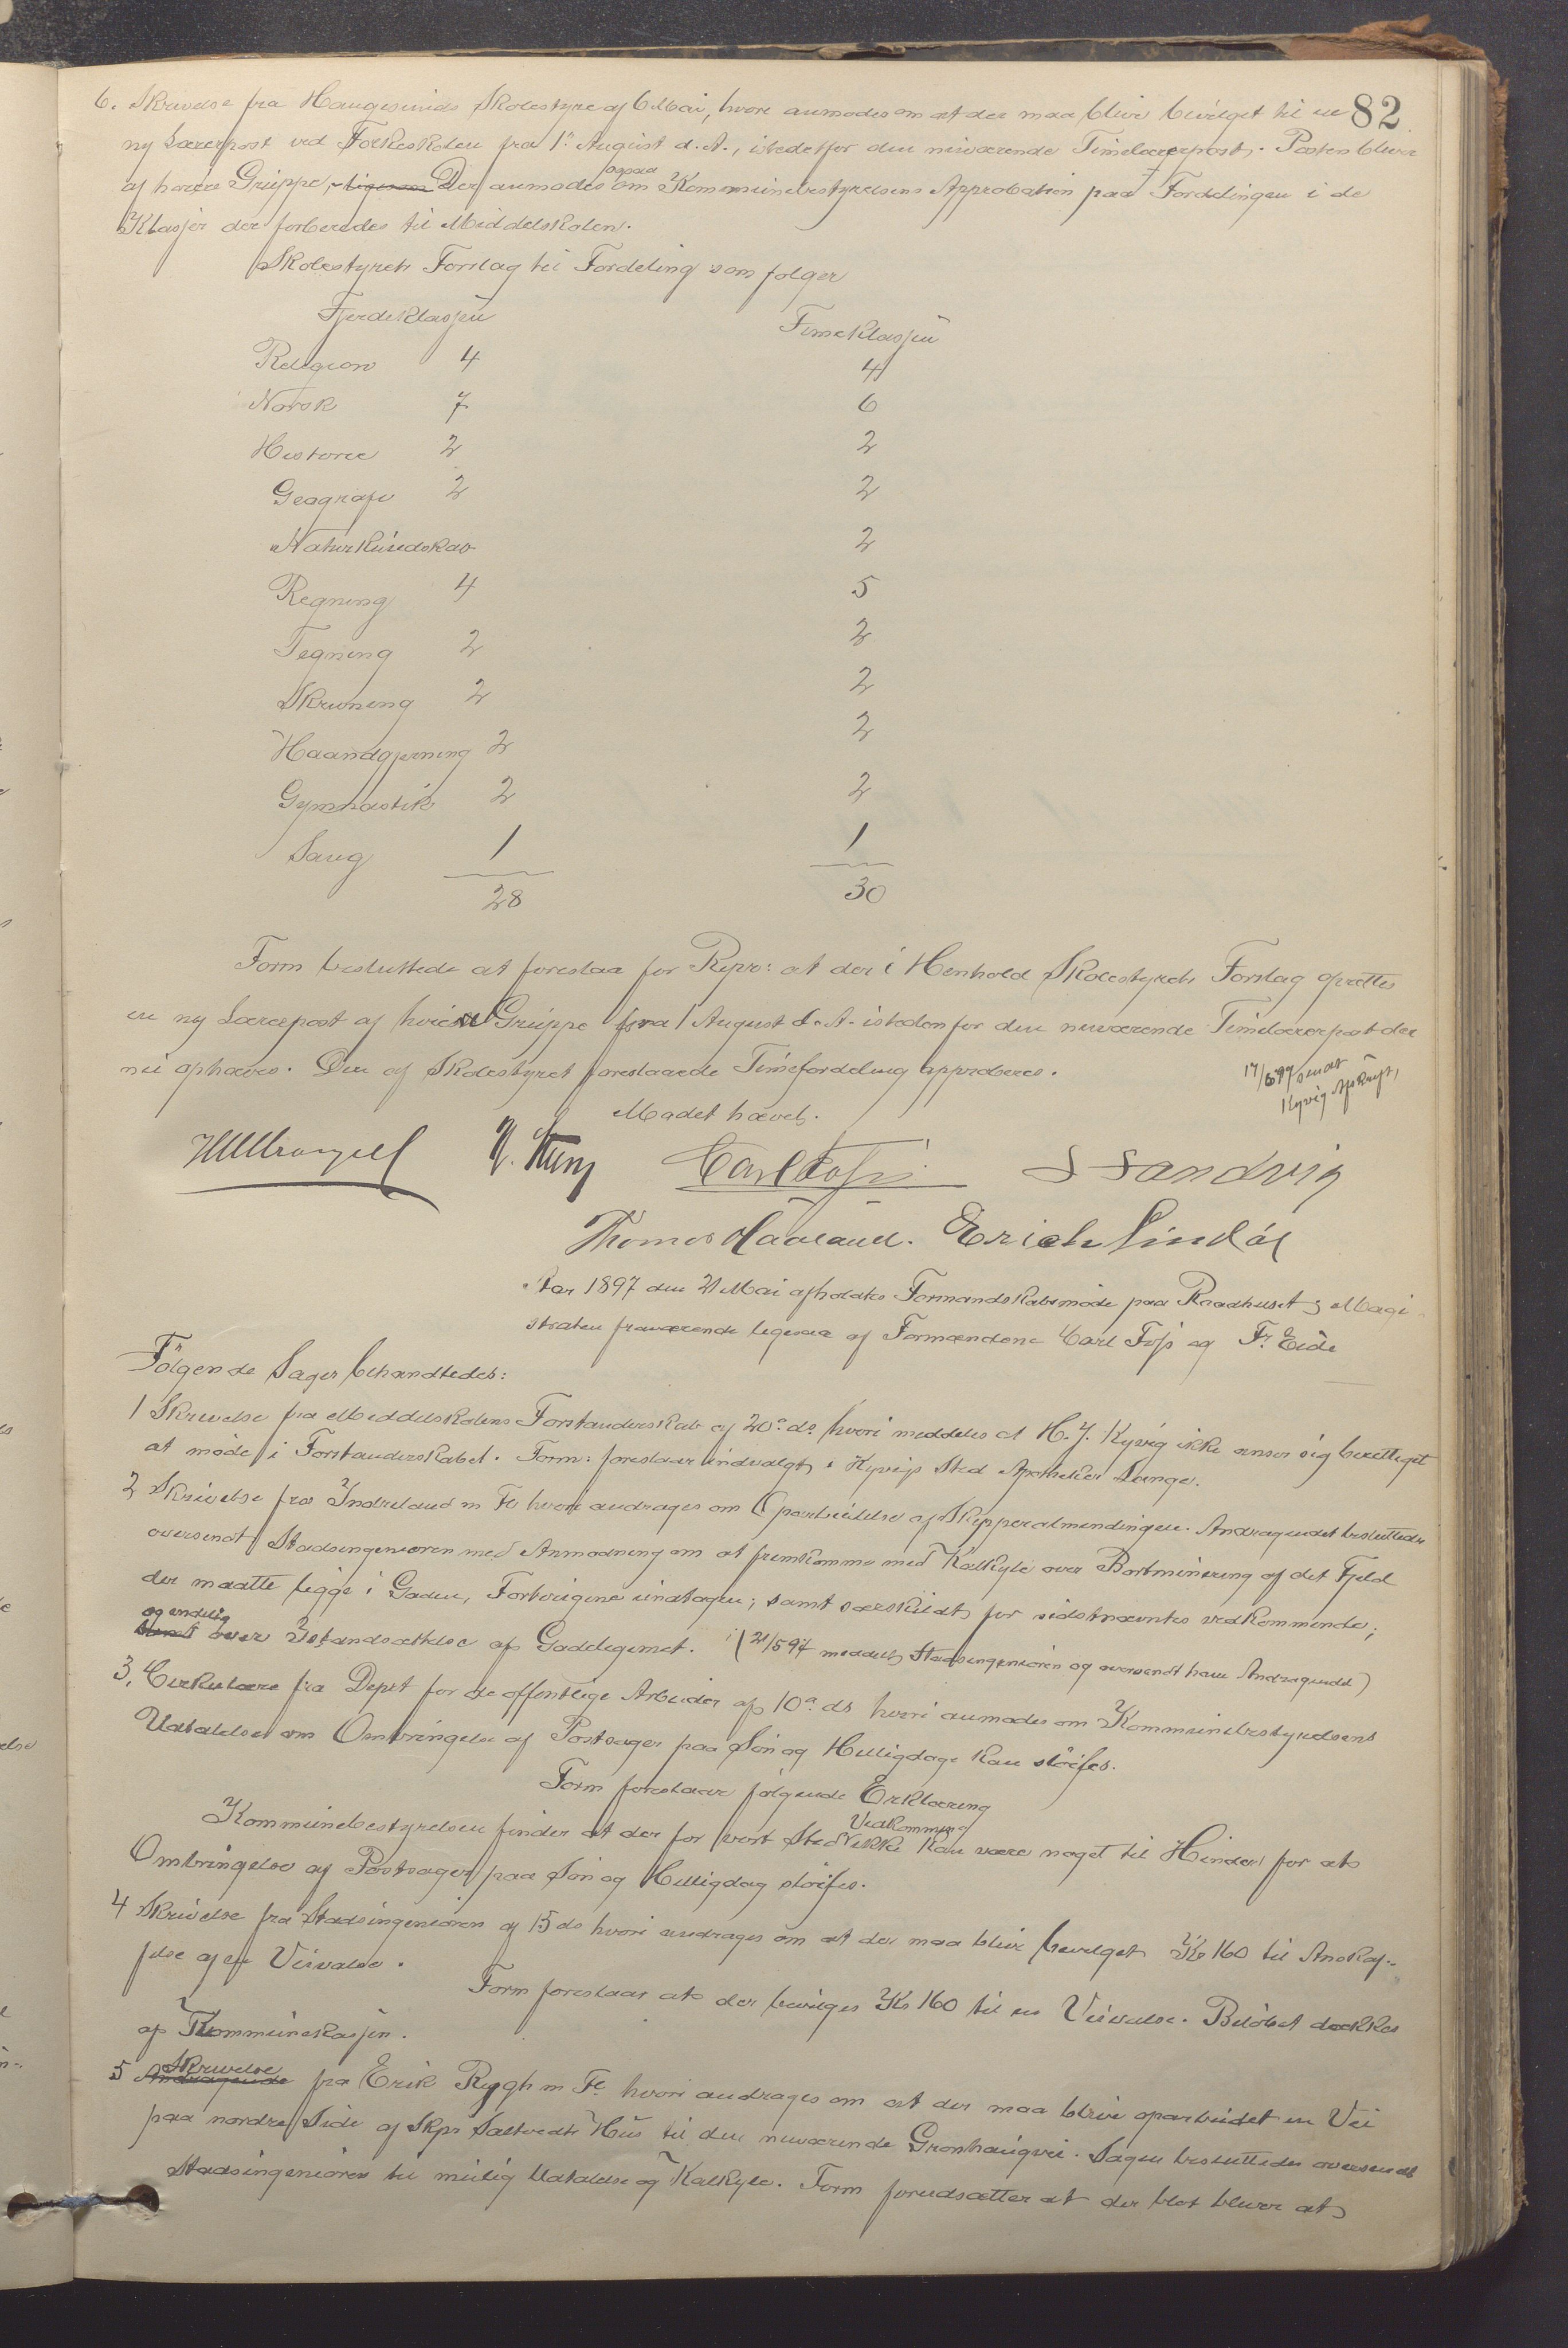 82
6. Skrivelse fra Haugesunds Skolestyre af 6 Mai, hvori anmodes om at der maa blive bevilget til en
ny Lærerpost ved Folkeskolen fra 1ste August d. A., istedetfor den nuværende Timelærerpost. Posten bliver
af høiere Gruppe, ligesom Der anmodes ogsaa om Kommunebestyrelsens Approbation paa Fordelingen i de
Klasser der forberedes til Middelskolen.
Skolestyrets Forslag til Fordeling som følger
Fjerdeklassen Femteklassen
Religion 4 4
Norsk 7 6
Historie 2 2
Geografi 2 2
Naturkundskab 2
Regning 4 5
Tegning 2 2
Skrivning 2 2
Haandgjerning 2 2
Gymnastik 2 2
Sang 1 1
28 30
Form besluttede at foreslaa for Repr: at der i Henhold Skolestyrets Forslag oprettes
en ny Lærerpost af høiere Gruppe fra 1 August d. A. istedenfor den nuværende Timelærerpost der
nu ophæves. Den af Skolestyret foreslaaede Timefordeling approberes.
17/6 97 sendt
Kyvig Afskrift,
Mødet hævet.
Carl Foss S Sandvig
Thomas Haaland. Erich Lindøe
Aar 1897 den 21 Mai afholdtes Formandskabsmøde paa Raadhuset; Magi
straten fraværende ligesaa af Formændene Carl Foss og Fr. Eide
Følgende Sager behandledes:
1 Skrivelse fra Middelskolens Forstanderskab af 20de ds hvori meddeles at H. J. Kyvig ikke anser sig berettiget
at møde i Forstanderskabet. Form: foreslaar indvalgt i Kyvigs Sted Apotheker Lange.
2 Skrivelse fra Indreland m Fl hvori andrages om Oparbeidelse af Skipperalmendingen. Andragendet besluttedes
oversendt Stadsingeniøren med Anmodning om at fremkomme med Kalkyle over Bortminering af det Fjeld
der maatte ligge i Gaden, Fortougene undtagen; samt særskildt for sidstnævntes vedkommende;
og endelig
samt over Istandsættelse af Gadelegemet. (21/5 97 meddelt Stadsingeniøren og oversendt ham Andragendet)
3. Cirkulære fra Dept for de offentlige Arbeider af 10de ds hvori anmodes om Kommunebestyrelsens
Udtalelse om Ombringelse af Postsager paa Søn og Helligdage kan sløifes.
Form foreslaar følgende Erklæring
Kommunebestyrelsen finder at der for vort Sted Vedkommende ikke kan være noget til Hinder for at
Ombringelse af Postsager paa Søn og Helligdag sløifes.
4 Skrivelse fra Stadsingeniøren af 15 ds hvori andrages om at der maa blive bevilget Kr 160 til Anskaf-
felse af en Veivalse.
Form foreslaar at der bevilges Kr 160 til en Veivalse. Beløbet dækkes
af Kommunekassen.
Skrivelse
5 Andragende fra Erik Rygh m Fl hvori andrages om at der maa blive oparbeidet en Vei
paa nordre Side af Skpr Saltvedts Hus til den nuværende Grønhaugvei. Sagen besluttedes oversendt
Stadsingeniøren til mulig Udtalelse og Kalkyle. Form forudsætter at der blot bliver at